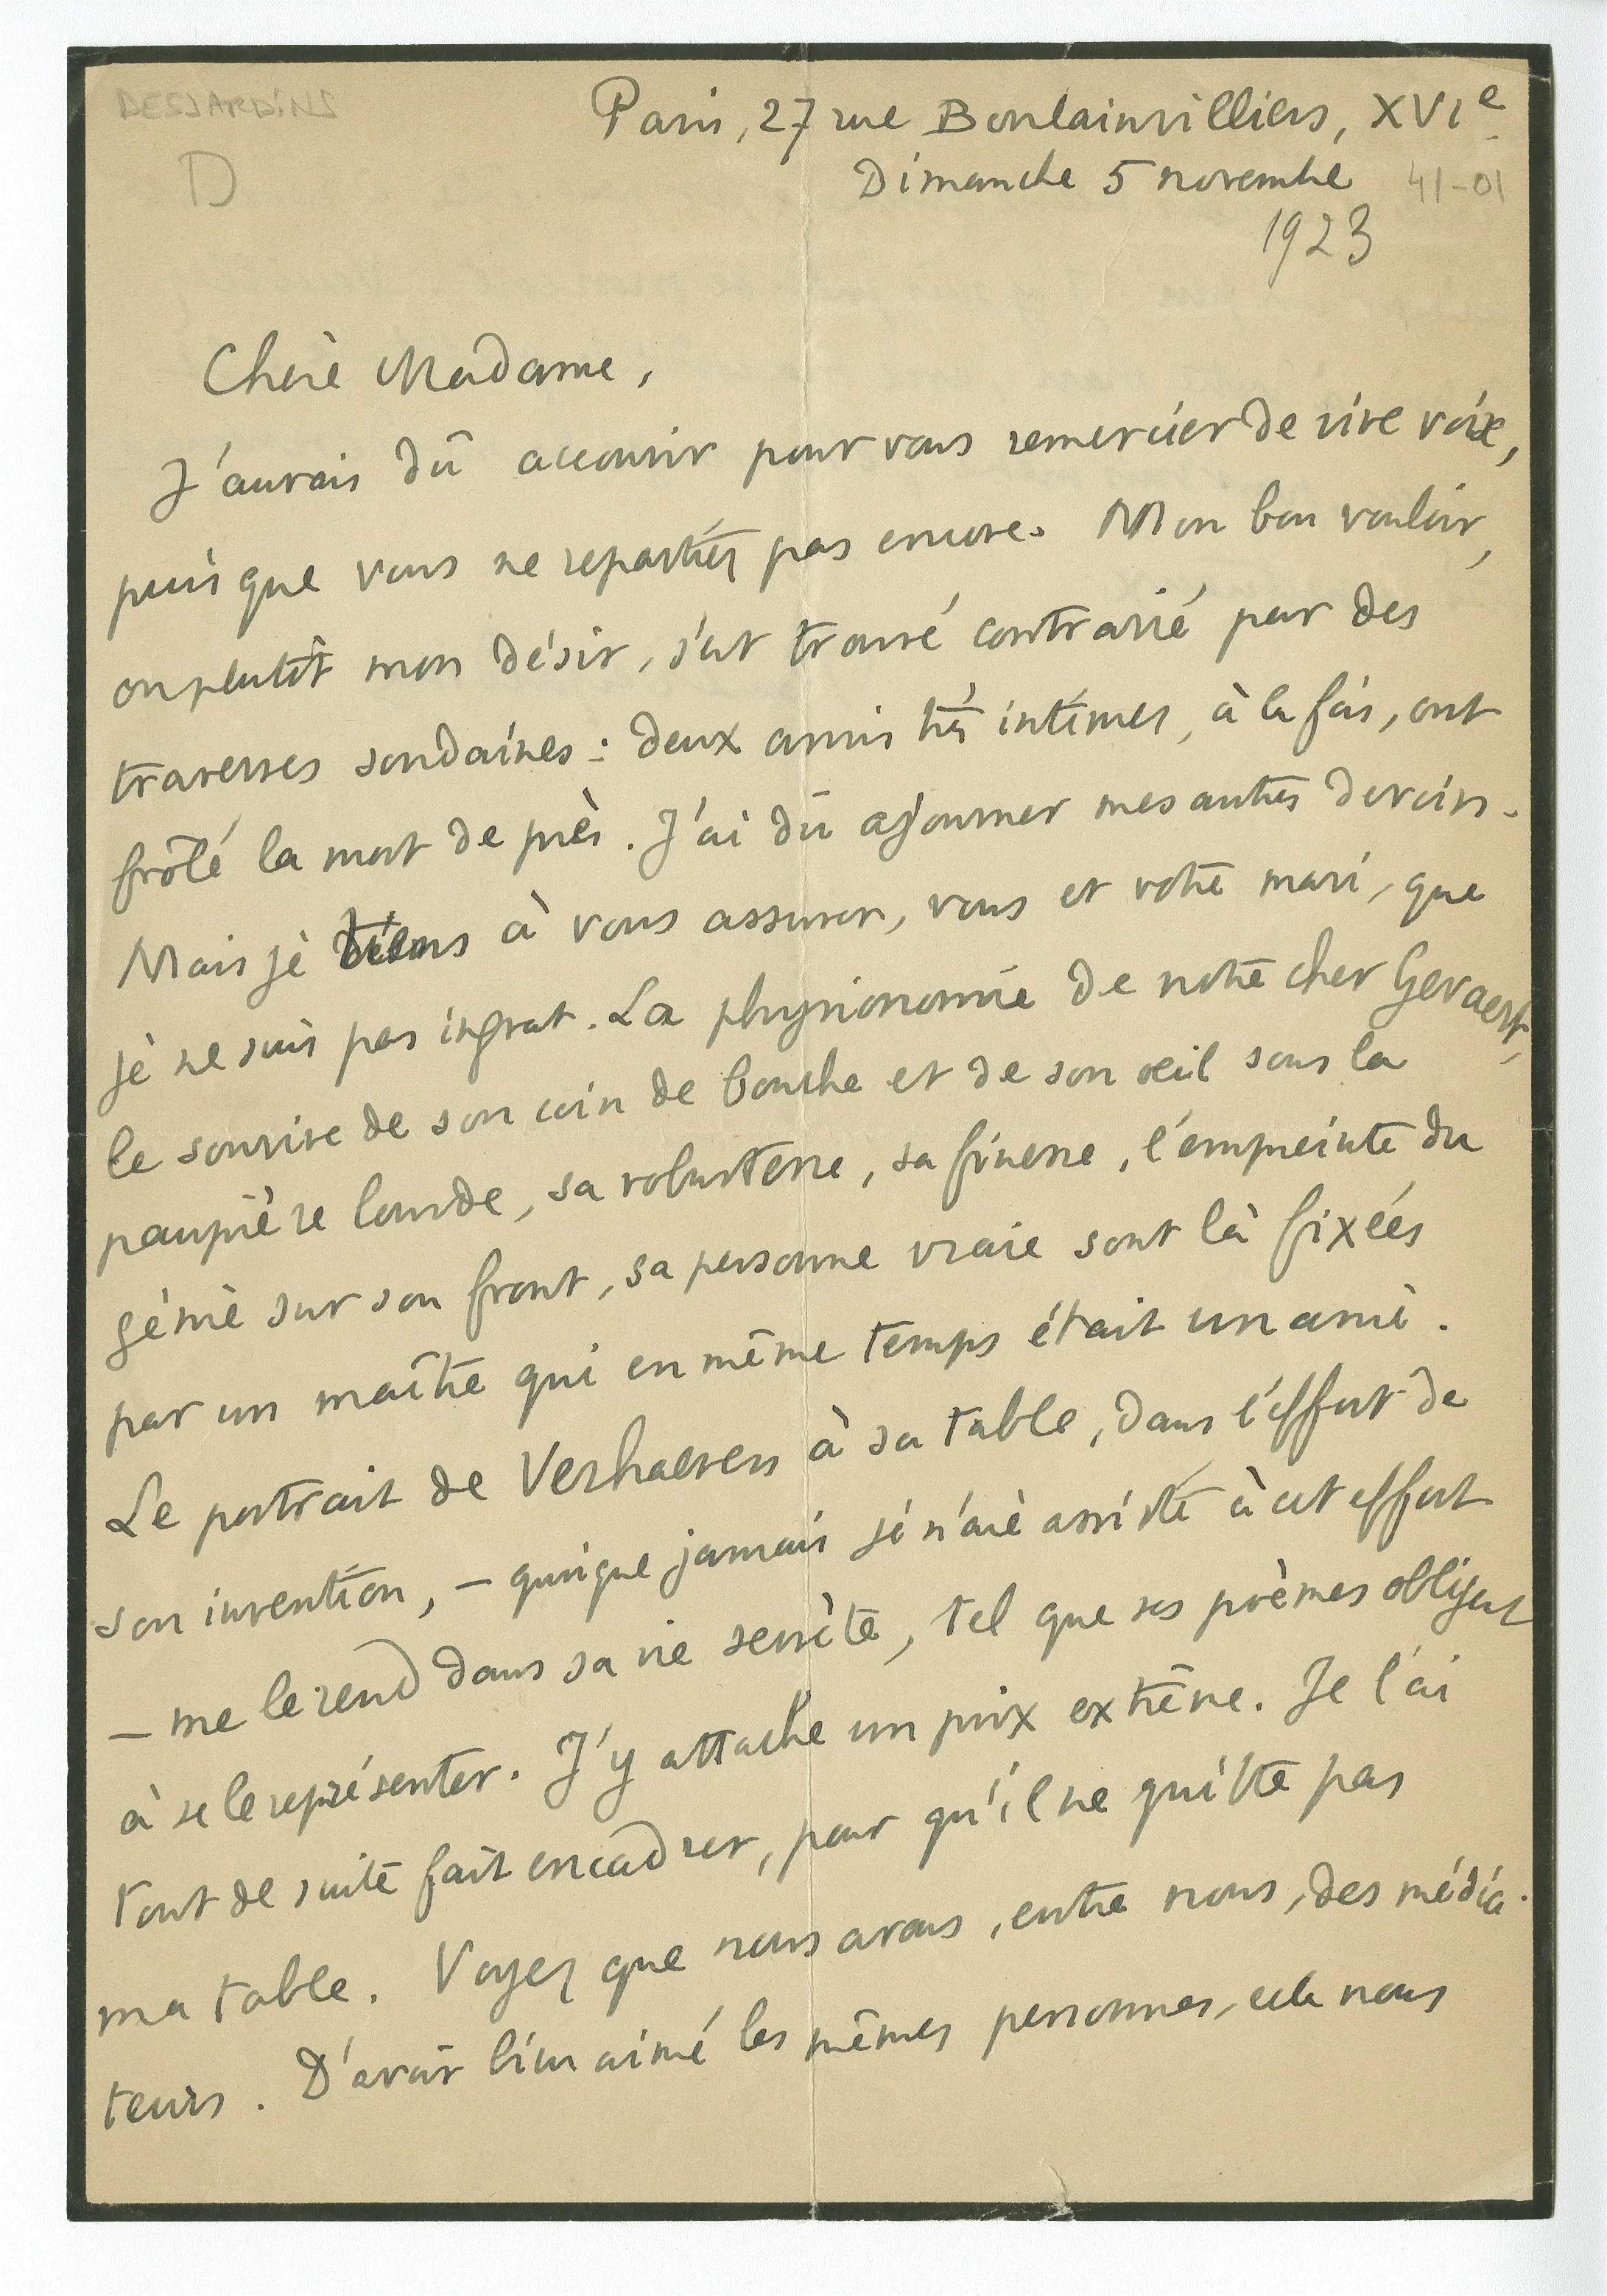 DESJARDINS
D
Paris, 27 rue Boulainvilliers, XVIe
Dimanche 5 novembre 41-01
1923
Chère Madame,
J'aurais dû accourir pour vous remercier de vive voix,
puisque vous ne repartiez pas encore. Mon bon vouloir,
ou plutôt mon désir, s'est trouvé contrarié par des
traverses soudaines : deux amis très intimes, à la fois, ont
frôlé la mort de près. J'ai dû ajourner mes autres devoirs.
Mais je tiens à vous assurer, vous et votre mari, que
je ne suis pas ingrat. La physionomie de notre cher Gevaert,
le sourire de son coin de bouche et de son œil sous la
paupière lourde, sa robustesse, sa finesse, l'empreinte du
génie sur son front, sa personne vraie sont là fixées
par un maître qui en même temps était un ami.
Le portrait de Verhaeren à sa table, dans l'effort de
son invention, – quoique jamais je n'aie assisté à cet effort
– me le rend dans sa vie secrète, tel que ses poèmes obligent
à se le représenter. J'y attache un prix extrême. Je l'ai
tout de suite fait encadrer, pour qu'il ne quitte pas
ma table. Voyez que nous avons, entre nous, des média-
teurs. D'avoir bien aimé les mêmes personnes, cela nous